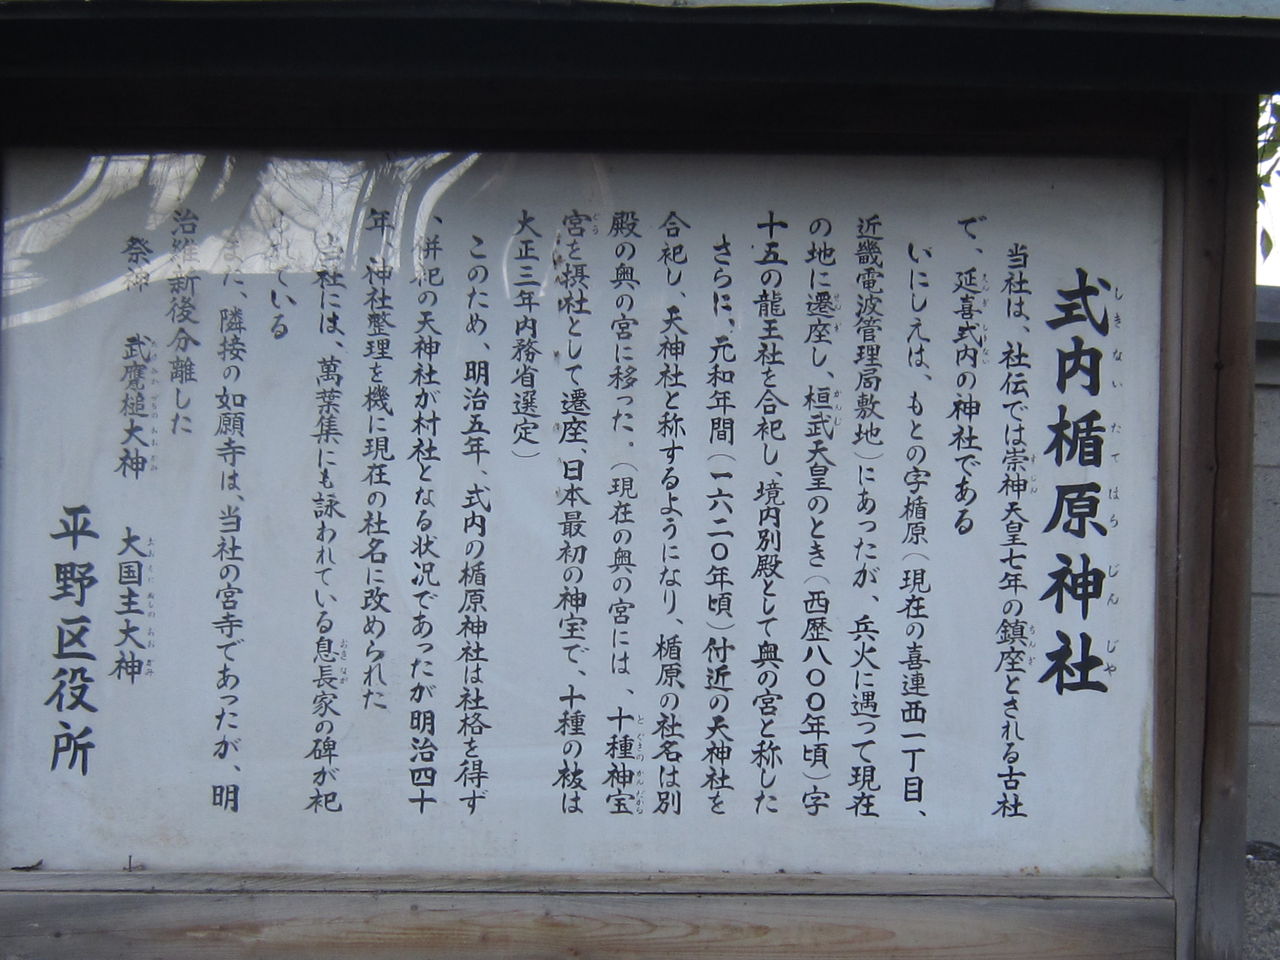 式内楯原神社
当社は、社伝では崇神天皇七年の鎮座とされる古社
で、延喜式内の神社である
いにしえは、もとの字楯原(現在の喜連西一丁目、
近畿電波管理局敷地)にあったが、兵火に遇って現在
の地に遷座し、桓武天皇のとき(西歴八〇〇年頃)字
十五の龍王社を合祀し、境内別殿として奥の宮と称した
さらに、元和年間(一六二〇年頃)付近の天神社を
合祀し、天神社と称するようになり、楯原の社名は別
殿の奥の宮に移った。(現在の奥の宮には、十種神宝
宮を摂社として遷座、日本最初の神宝で、十種の祓は
大正三年内務省選定)
このため、明治五年、式内の楯原神社は社格を得ず
、併祀の天神社が村社となる状況であったが明治四十
年、神社整理を機に現在の社名に改められた
当社には、萬葉集にも詠われている息長家の碑が祀
られている
また、隣接の如願寺は、当社の宮寺であったが、明
治維新後分離した
祭神 武甕槌大神 大国主大神
平野区役所